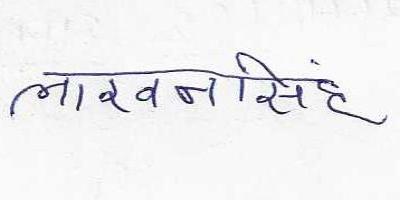 लाखन सिंह